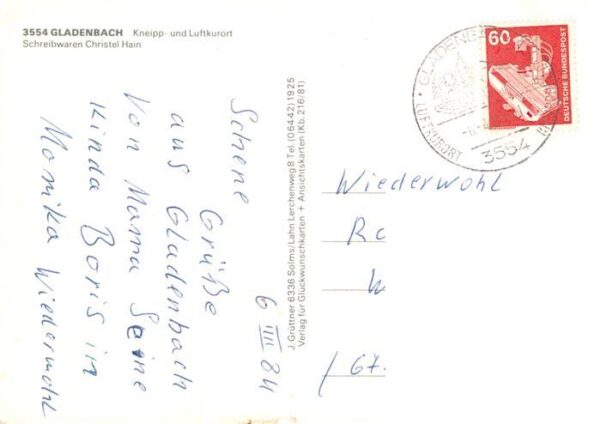 3554 GLADENBACH Kneipp- und Luftkurort
Schreibwaren Christel Hain
Schene Grüße
6 VIII 84
aus Gladenbach
Von Mama Seine
Kinda Boris in
Monika Wiederwohl
J. Grüttner 6336 Solms/Lahn Lerchenweg 8 Tel. (06442) 1925
Verlag für Glückwunschkarten + Ansichtskarten (Kb. 216/81)
60
DEUTSCHE BUNDESPOST
LUFTKURORT
3554
Wiederwohl
Rc
W
/ 67.